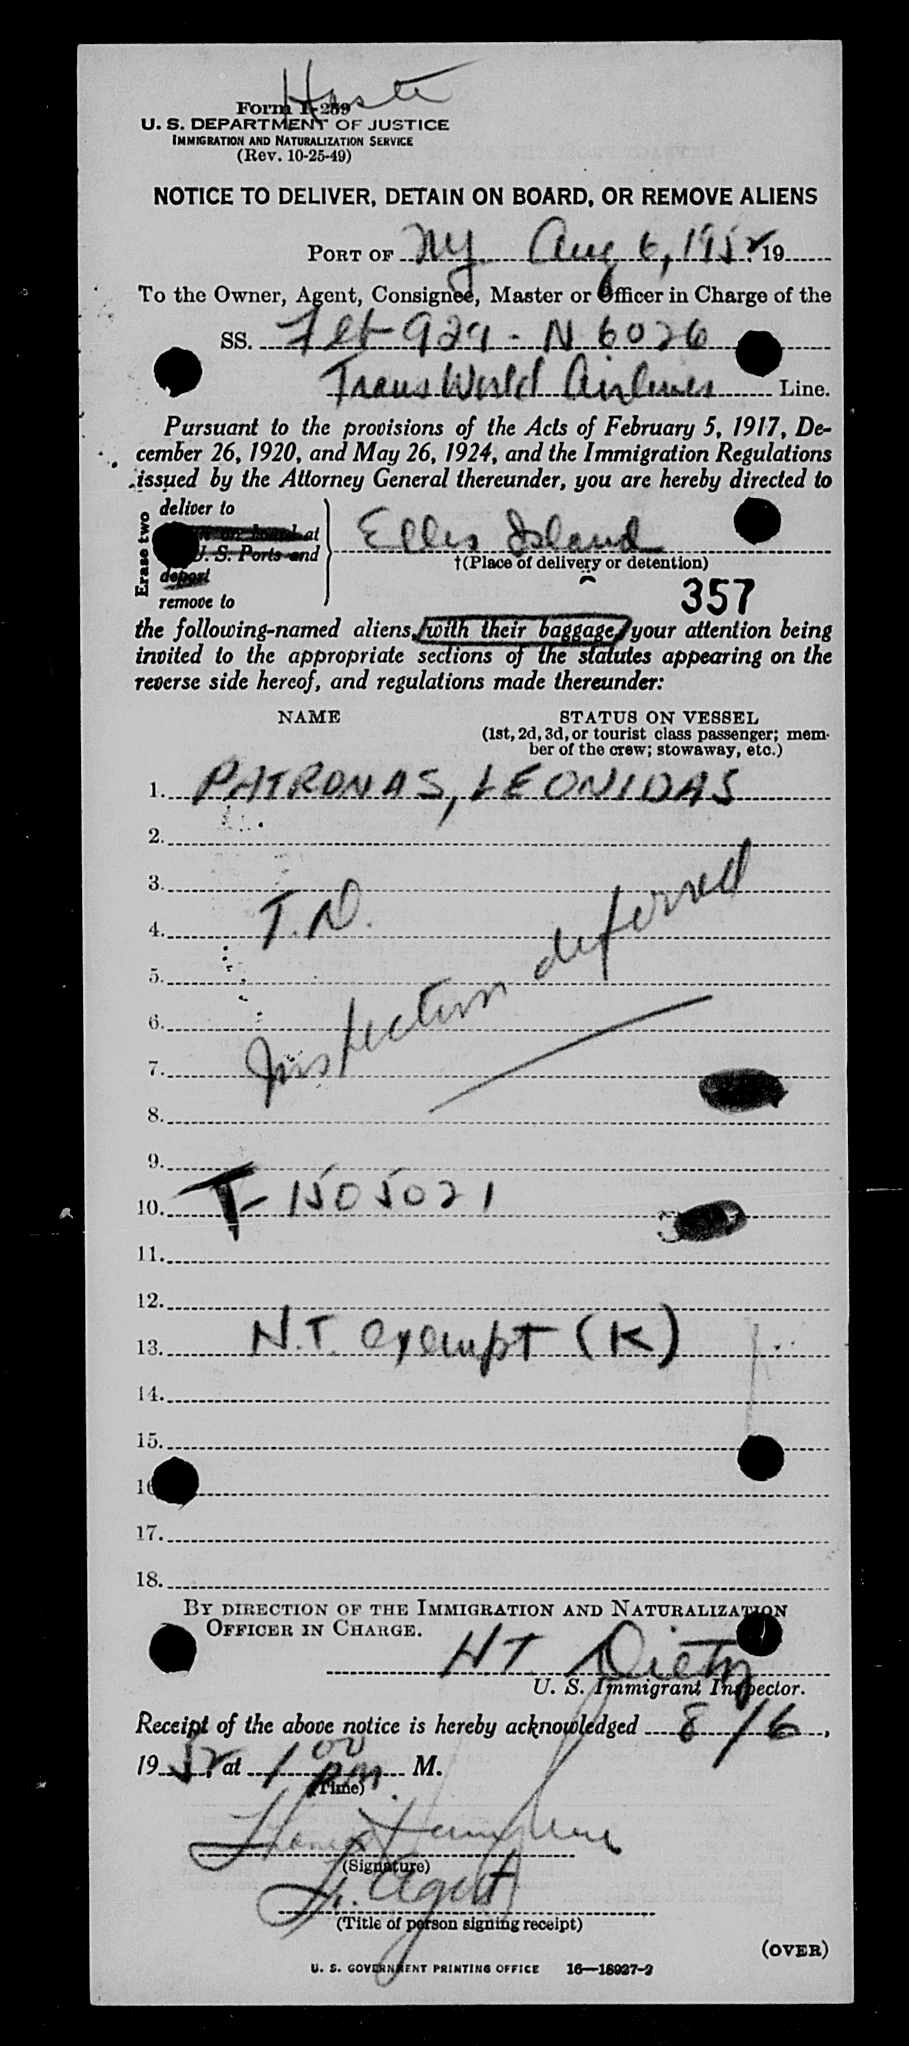 Form I-259
U. S. DEPARTMENT OF JUSTICE
IMMIGRATION AND NATURALIZATION SERVICE
(Rev. 10-25-49)
NOTICE TO DELIVER, DETAIN ON BOARD, OR REMOVE ALIENS
PORT OF NY. Aug 6, 1952 19
To the Owner, Agent, Consignee, Master or Officer in Charge of the
SS. Flt 929 - N 6026
Trans World Airlines Line.
Pursuant to the provisions of the Acts of February 5, 1917, De-
cember 26, 1920, and May 26, 1924, and the Immigration Regulations
issued by the Attorney General thereunder, you are hereby directed to
Erase two
deliver to
on board at
U. S. Ports and
deport
remove to
Ellis Island
†(Place of delivery or detention)
357
the following-named aliens, with their baggage, your attention being
invited to the appropriate sections of the statutes appearing on the
reverse side hereof, and regulations made thereunder:
NAME STATUS ON VESSEL
(1st, 2d, 3d, or tourist class passenger; mem-
ber of the crew; stowaway, etc.)
1. PATRONAS, LEONIDAS
2.
3.
4. T.D.
5.
6. Inspection deferred
7.
8.
9.
10. T-1505021
11.
12.
13. N.T. exempt (K)
14.
15.
16
17.
18.
BY DIRECTION OF THE IMMIGRATION AND NATURALIZATION
OFFICER IN CHARGE.
HT. Dietz
U. S. Immigrant Inspector.
Receipt of the above notice is hereby acknowledged 8/6,
1952, at 1 00 PM M.
(Time)
(Signature)
Agent
(Title of person signing receipt)
(OVER)
U. S. GOVERNMENT PRINTING OFFICE 16—18927-2